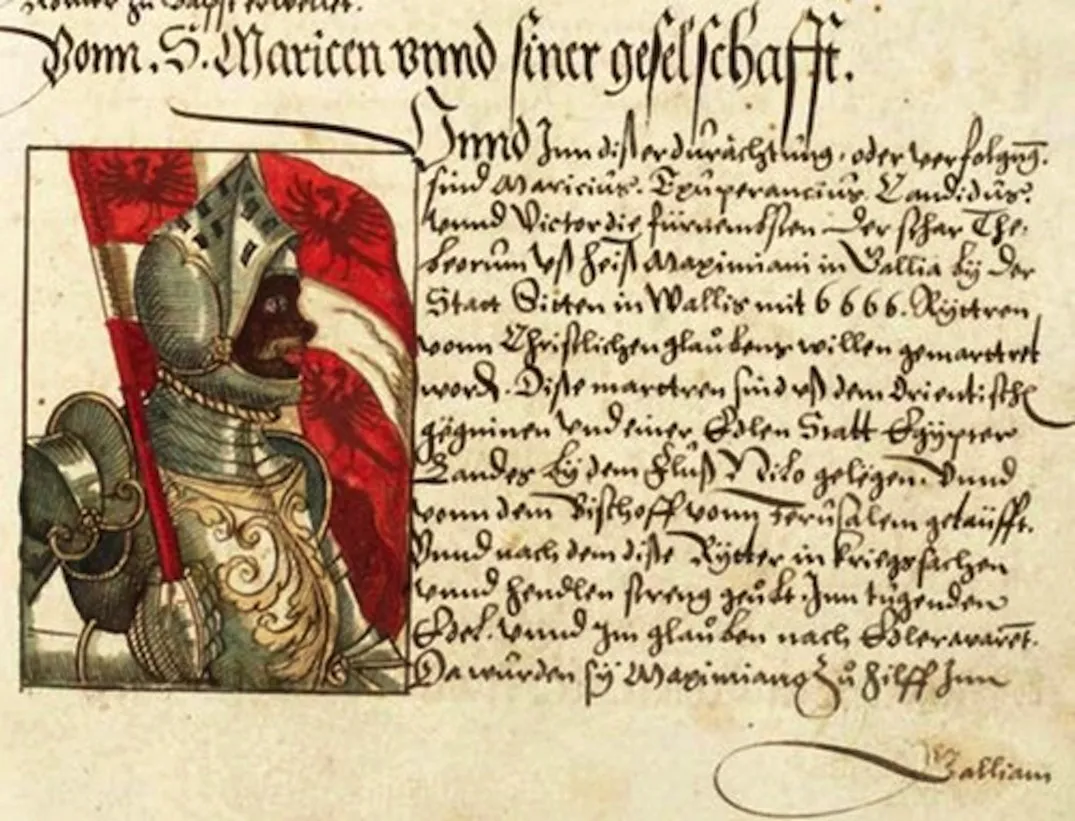 Römer zu Bapst erwellet.
Vonn. S. Mauricen vnnd siner geselschafft.
Vnnd Inn diser durächtung, oder verfolgung.
sind Mauricius. Exuperancius. Candidus.
vnnd Victor die fürnembsten der schar The-
beorum vß heiß Maximiani in Gallia by der
Statt Sitten in Wallis mit 6666. Ryttren
vonn Christlichen glaubens willen gemarttret
word. Dise marttren sind vß dem Orientisch
gegninen vnd einer Edlen Statt Egypter
Landes by dem fluß Nilo gelegen. Vnnd
vonn dem Bischoff vonn Jerusalem getäufft.
Vnnd nach dem dise Rytter in kriegssachen
vnnd hendlen streng geübt. Inn tugenden
Edel. vnnd Im glauben nach Edler warent.
Da wurden sy Maximiano zu hilff Inn
Galliam